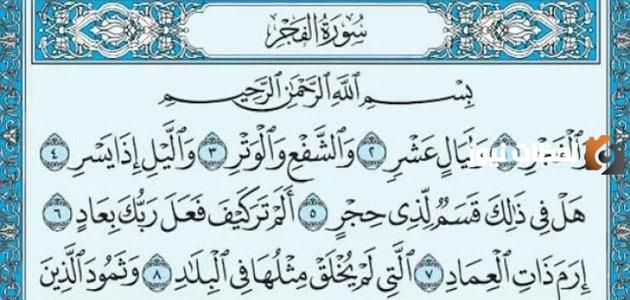 سُورَةُ الفَجْرِ
بِسْمِ ٱللَّهِ ٱلرَّحْمَٰنِ ٱلرَّحِيمِ
وَٱلْفَجْرِ ١ وَلَيَالٍ عَشْرٍ ٢ وَٱلشَّفْعِ وَٱلْوَتْرِ ٣ وَٱلَّيْلِ إِذَا يَسْرِ ٤
هَلْ فِى ذَٰلِكَ قَسَمٌ لِّذِى حِجْرٍ ٥ أَلَمْ تَرَ كَيْفَ فَعَلَ رَبُّكَ بِعَادٍ ٦
إِرَمَ ذَاتِ ٱلْعِمَادِ ٧ ٱلَّتِى لَمْ يُخْلَقْ مِثْلُهَا فِى ٱلْبِلَٰدِ ٨ وَثَمُودَ ٱلَّذِينَ